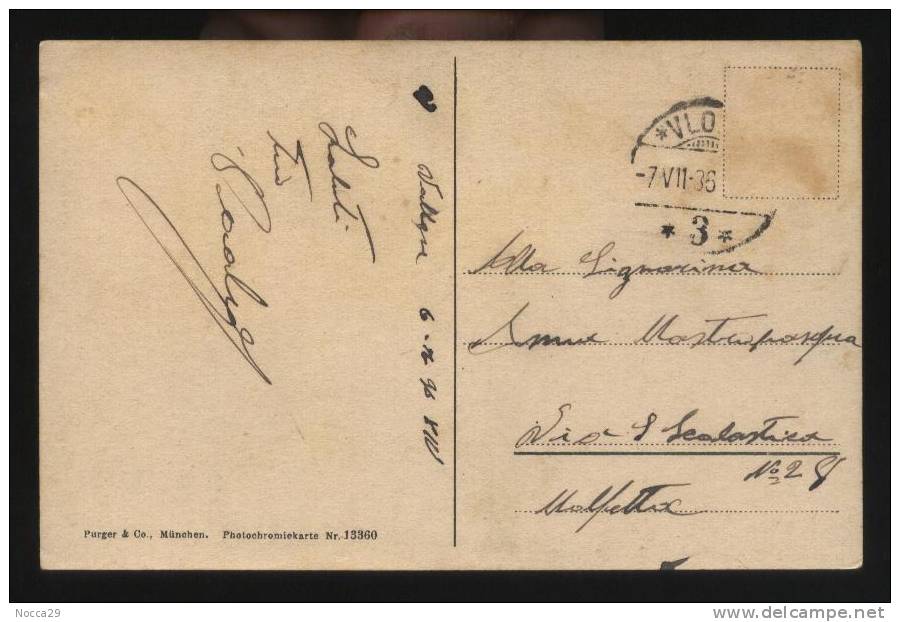 Saluti
tuo
6-
*VLO
-7.VII-36
* 3 *
Alla Signorina
Anna Mastropasqua
Via S Scolastica
No 28
Molfetta
Purger & Co., München. Photochromiekarte Nr. 13360
Nocca29
www.delcampe.net